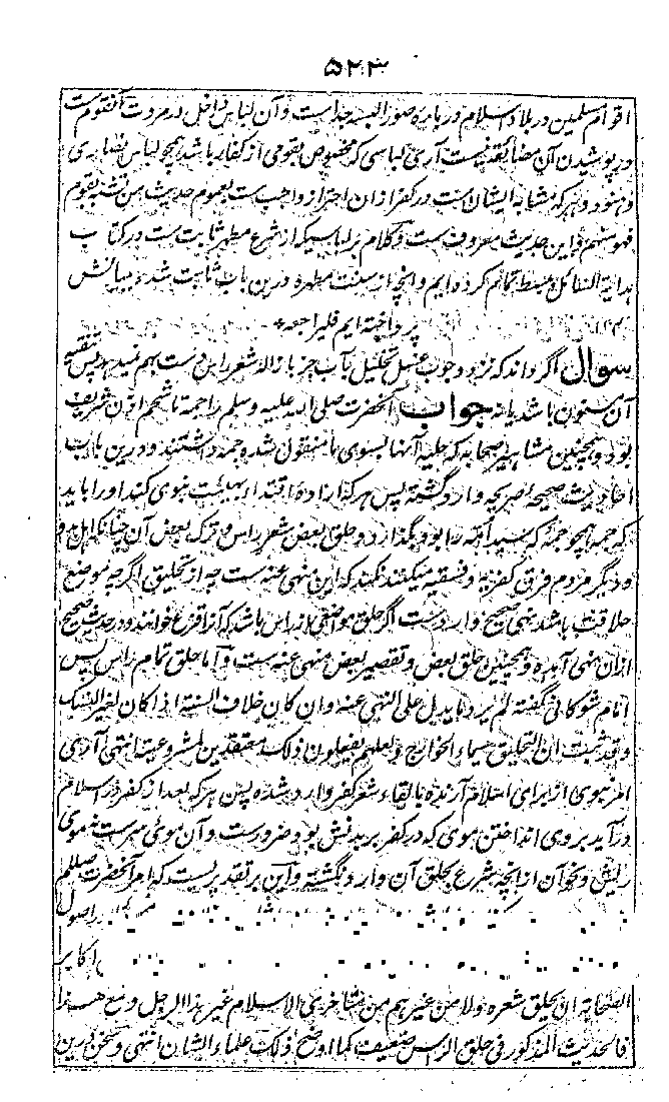 ۵۲۳
اقوام مسلمین در بلاد اسلام درباره صور البسه جداست و آن لباس داخل در مروت آنقوم ست
در پوشیدن آن مضایقه نیست آری لباسی که مخصوص بقومی از کفار باشد همچو لباس نصاری
و هنود و هرکه مشابه ایشان ست در کفر ازان احتراز واجب ست بعموم حدیث من تشبه بقوم
فهو منهم و این حدیث معروف ست و کلام بر لباسیکه از شرع مطهر ثابت ست در کتاب
هدایة السائل ببسط تمام کرده ایم و آنچه از سنت مطهره درین باب ثابت شده ببیانش
پرداخته ایم فلیراجعه
سوال اگر داند که نزد وجوب غسل تخلیل بآب جز بازاله شعر این دست بهم نمیدهد پس
آن مسنون باشد یا نه جواب آنحضرت صلی الله علیه وسلم را جمه تا شحم اذن شریف
بود و همچنین مشاهیر صحابه که حلیه آنها بسوی ما منقول شده جمه داشتند و درین باب
احادیث صحیحه صریحه وارد گشته پس هر کذا اراده اقتدا بهیئت نبوی کند او را باید
که جمه همچو جمه که سید امت را بود بگذارد و حلق بعض شعر راس و ترک بعض آن چنانکه
و دیگر مردم فرق کفریه و فسقیه میکنند نکند که این منهی عنه ست چه از تحلیق اگرچه بموضع
باشد نهی صحیح وارد ست اگر حلق مواضعی از راس باشد که آنرا قزع خوانند و در حدیث صحیح
ازان نهی آمده و همچنین حلق بعض و تقصیر بعض منهی عنه ست و اما حلق تمام راس پس
امام شوکانی گفته لم یرد ما یدل علی النهی عنه وان کان خلاف السنة اذا کان لغیر النسک
وقد ثبت ان التحلیق سیماء الخوارج ولعلهم یفعلون ذلک معتقدین لمشروعیته انتهی آری
امر نبوی از برای اسلام آرنده بالقاء شعر کفر وارد شده پس هرکه بعد از کفر در اسلام
درآید بروی انداختن موی که در کفر بر بدنش بود ضرورست و آن موی سرست نه موی
ریش و نحو آن از آنچه شرع بحلق آن وارد نگشته و این بر تقدیریست که امر آنحضرت صللم
راصول
اکابر
الصحابه ان یحلق شعره ولا من غیرهم من متاخری الاسلام غیر هذا الرجل ومع هذا
فالحدیث المذکور فی حلق الراس ضعیف کما اوضح ذلک علماء الشان انتهی و سخن درین